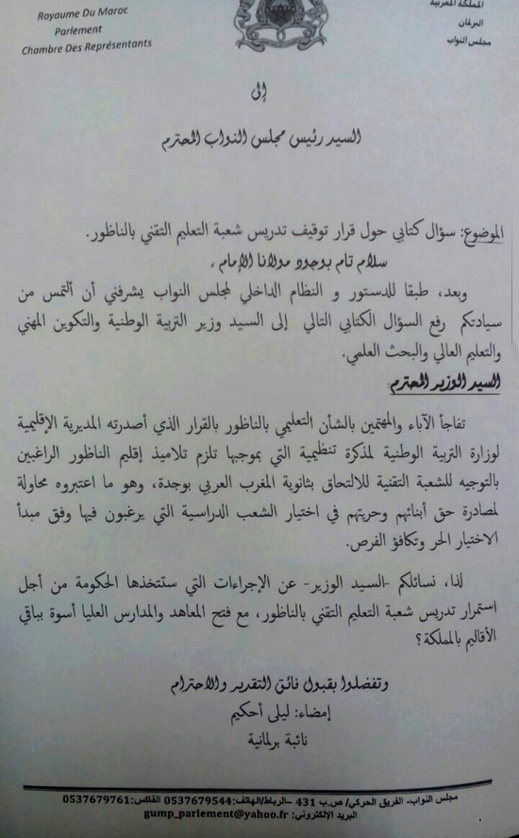 Royaume Du Maroc
Parlement
Chambre Des Représentants
المملكة المغربية
البرلمان
مجلس النواب
إلى
السيد رئيس مجلس النواب المحترم
الموضوع: سؤال كتابي حول قرار توقيف تدريس شعبة التعليم التقني بالناظور.
سلام تام بوجود مولانا الإمام ،
وبعد، طبقا للدستور و النظام الداخلي لمجلس النواب يشرفني أن ألتمس من
سيادتكم رفع السؤال الكتابي التالي إلى السيد وزير التربية الوطنية والتكوين المهني
والتعليم العالي والبحث العلمي.
السيد الوزير المحترم
تفاجأ الآباء والمهتمين بالشأن التعليمي بالناظور بالقرار الذي أصدرته المديرية الإقليمية
لوزارة التربية الوطنية لمذكرة تنظيمية التي بموجبها تلزم تلاميذ إقليم الناظور الراغبين
بالتوجيه للشعبة التقنية للالتحاق بثانوية المغرب العربي بوجدة، وهو ما اعتبروه محاولة
لمصادرة حق أبنائهم وحريتهم في اختيار الشعب الدراسية التي يرغبون فيها وفق مبدأ
الاختيار الحر وتكافؤ الفرص.
لذا، نسائلكم -السيد الوزير- عن الإجراءات التي ستتخذها الحكومة من أجل
استمرار تدريس شعبة التعليم التقني بالناظور، مع فتح المعاهد والمدارس العليا أسوة بباقي
الأقاليم بالمملكة؟
وتفضلوا بقبول فائق التقدير والاحترام
إمضاء: ليلى أحكيم
نائبة برلمانية
مجلس النواب- الفريق الحركي/ ص.ب 431 –الرباط/الهاتف:0537679544 الفاكس:0537679761
البريد الإلكتروني: gump_parlement@yahoo.fr